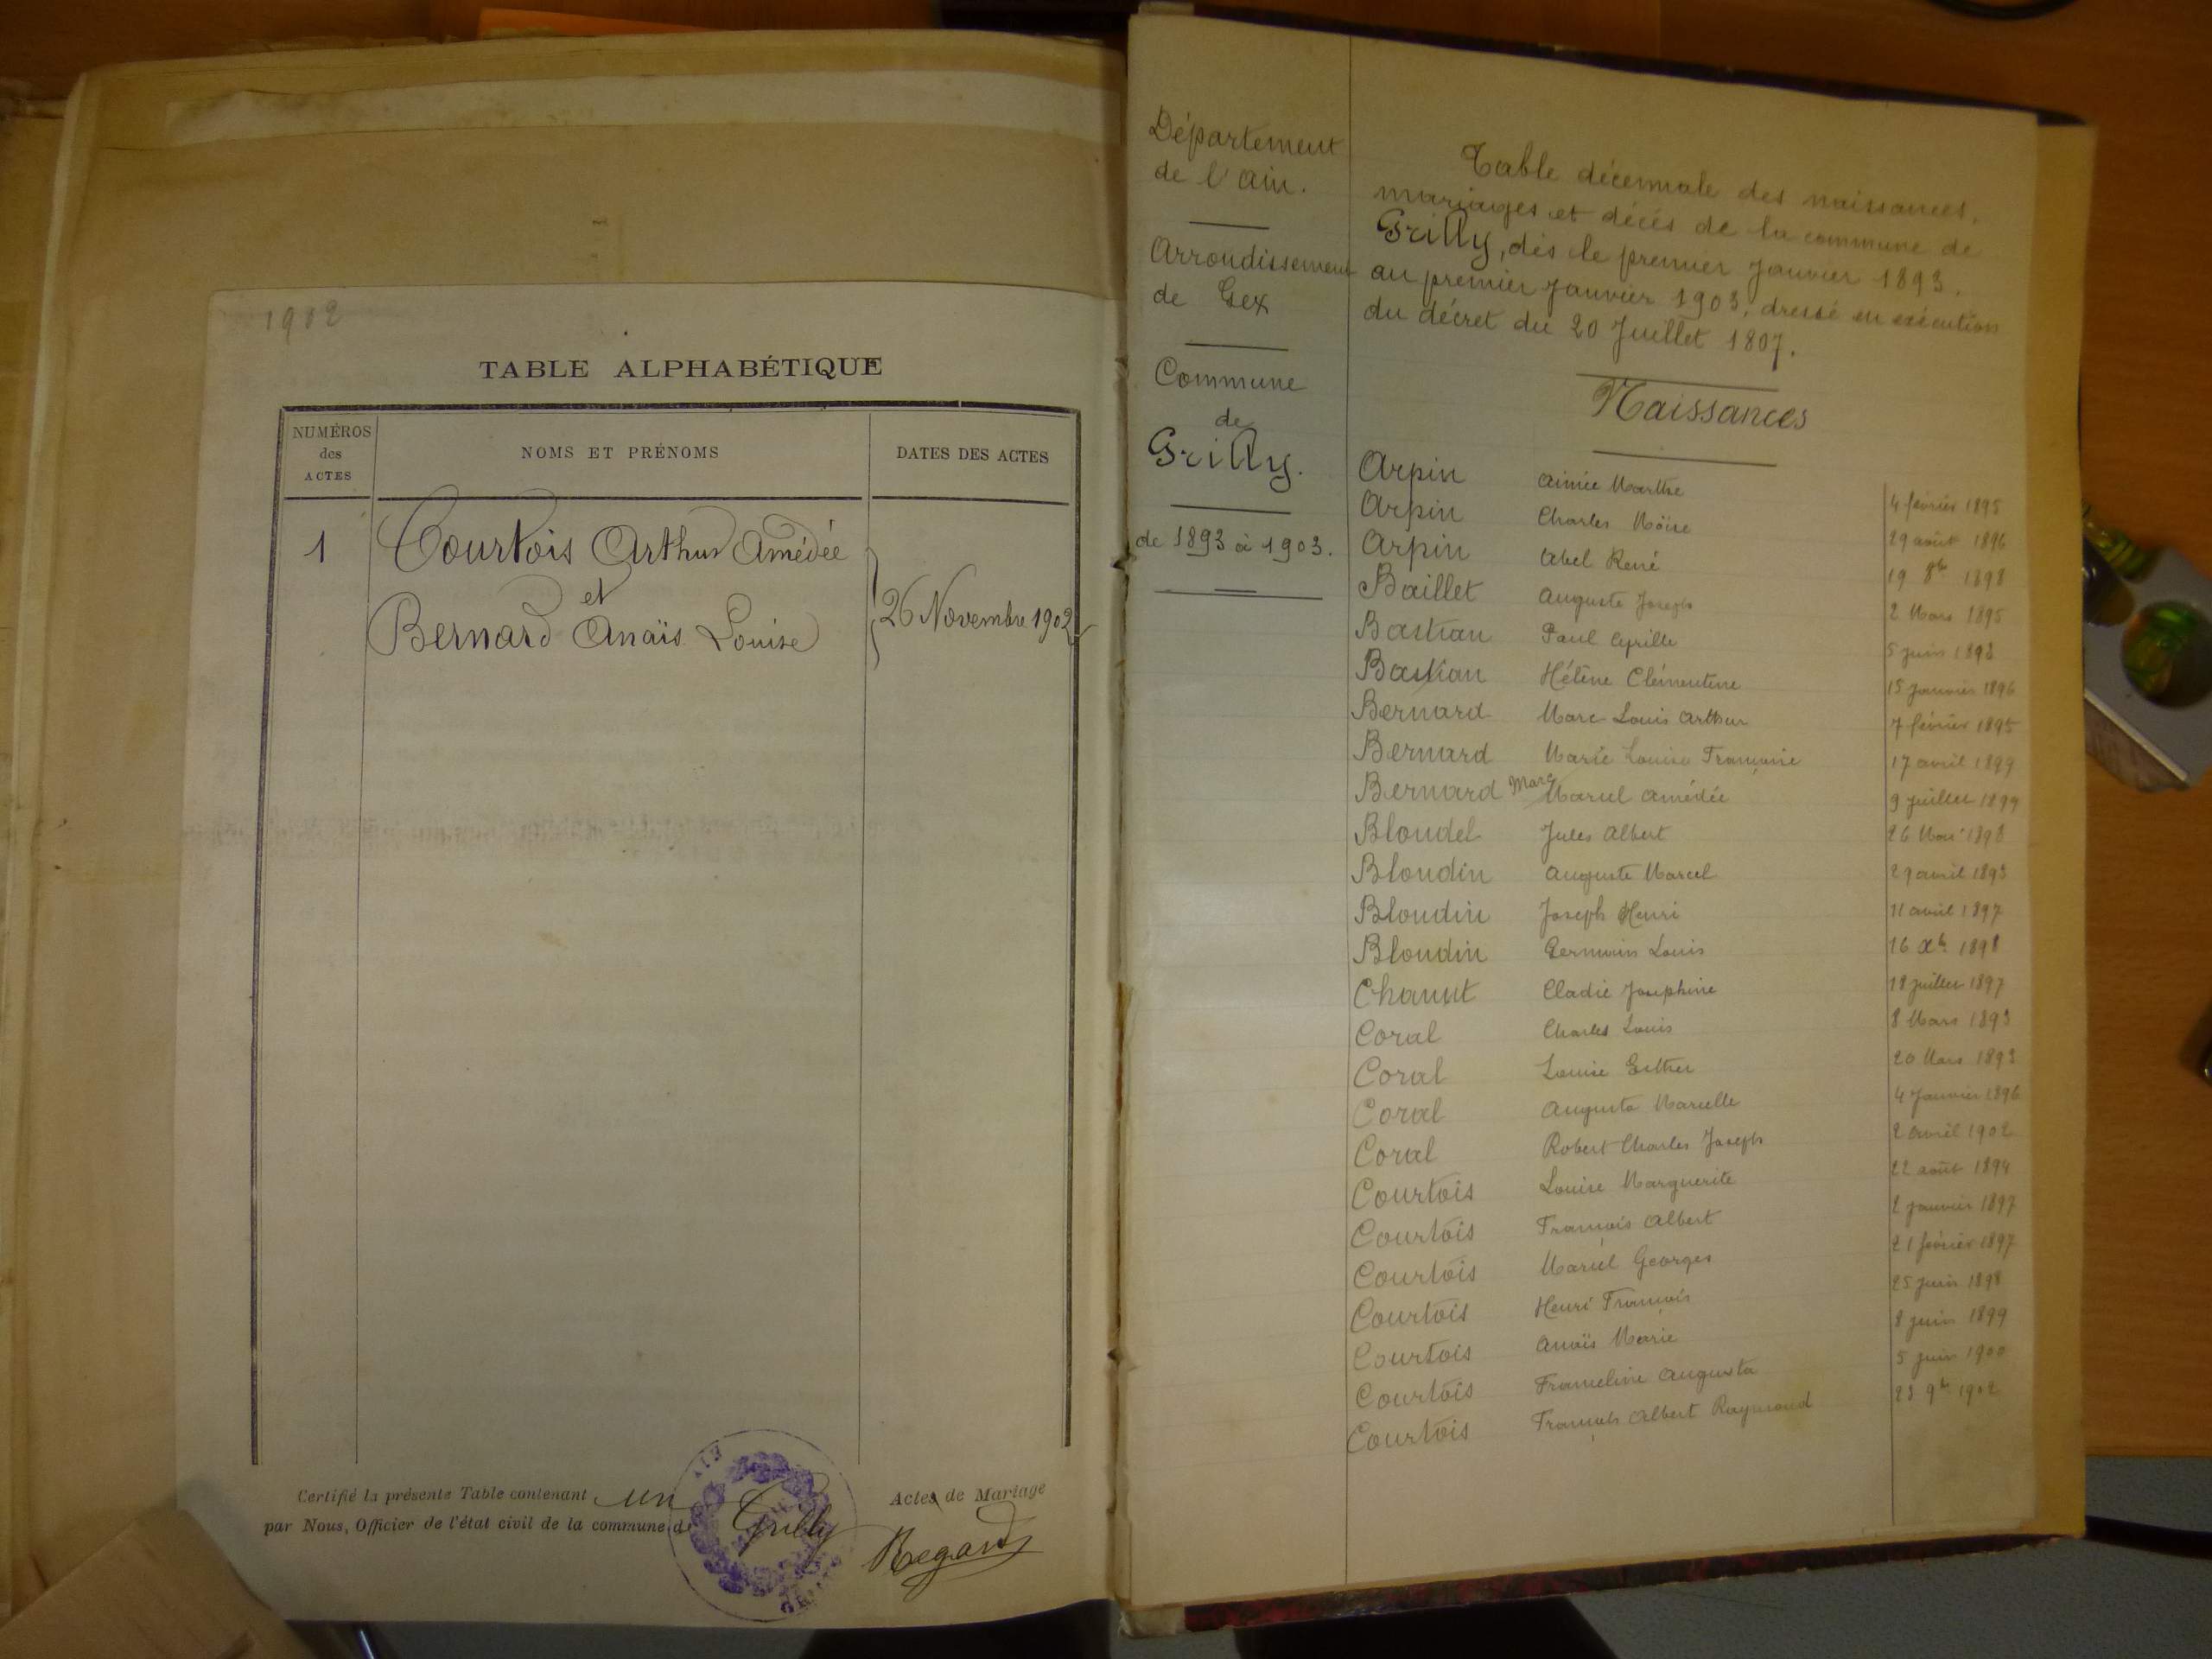 1902
TABLE ALPHABÉTIQUE
NUMÉROS
des
ACTES
NOMS ET PRÉNOMS
DATES DES ACTES
1
Courtois Arthur Amédée
et
Bernard Anaïs Louise
26 Novembre 1902
Certifié la présente Table contenant un Actes de Mariage
par Nous, Officier de l'état civil de la commune de Grilly
Regard
Département
de l'Ain.
Arrondissement
de Gex
Commune
de
Grilly.
de 1893 à 1903.
Table décennale des naissances,
mariages et décès de la commune de
Grilly, dès le premier Janvier 1893.
au premier Janvier 1903, dressé en exécution
du décret du 20 Juillet 1807.
Naissances
Arpin Aimée Marthe 4 février 1895
Arpin Charles 29 août 1896
Arpin Abel René 19 8bre 1898
Baillet Auguste Joseph 2 Mars 1895
Bastian Paul Cyrille 5 juin 1893
Bastian Hélène Clémentine 15 Janvier 1896
Bernard Marc Louis Arthur 7 février 1895
Bernard Marie Louise Françoise 17 avril 1899
Bernard Marc Marcel Amédée 9 juillet 1899
Blondel Jules Albert 26 Mai 1898
Blondin Auguste Marcel 29 avril 1893
Blondin Joseph Henri 11 avril 1897
Blondin Germain Louis 16 Xb 1898
Chanut Cladie Joséphine 18 juillet 1897
Coral Charles Louis 8 Mars 1893
Coral Louise Esther 20 Mars 1893
Coral Augusta Marcelle 4 Janvier 1896
Coral Robert Charles Joseph 2 avril 1902
Courtois Louise Marguerite 22 août 1894
Courtois François Albert 2 janvier 1897
Courtois Marcel Georges 21 février 1897
Courtois Henri François 25 juin 1898
Courtois Anaïs Marie 8 juin 1899
Courtois Franceline Augusta 5 juin 1900
Courtois François Albert Raymond 23 9b 1902